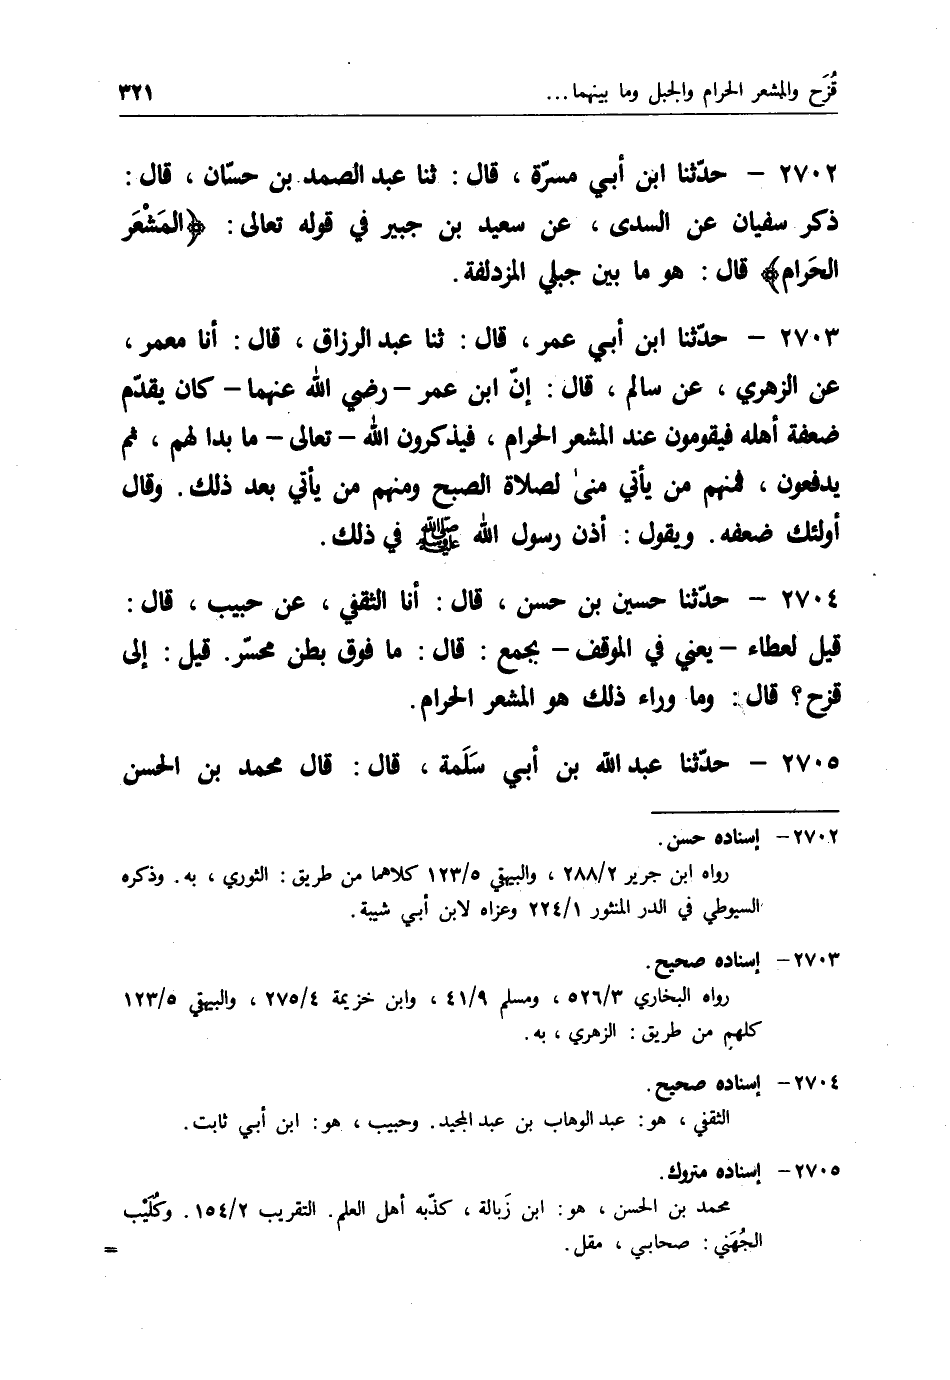 قُزَح والمشعر الحرام والجبل وما بينهما... ٣٢١
٢٧٠٢ - حدّثنا ابن أبي مسرّة ، قال : ثنا عبد الصمد بن حسّان ، قال :
ذكر سفيان عن السدى ، عن سعيد بن جبير في قوله تعالى : ﴿المَشْعَر
الحَرام﴾ قال : هو ما بين جبلي المزدلفة .
٢٧٠٣ - حدّثنا ابن أبي عمر ، قال : ثنا عبد الرزاق ، قال : أنا معمر ،
عن الزهري ، عن سالم ، قال : إنّ ابن عمر - رضي الله عنهما - كان يقدّم
ضعفة أهله فيقومون عند المشعر الحرام ، فيذكرون الله - تعالى - ما بدا لهم ، ثم
يدفعون ، فمنهم من يأتي منىٰ لصلاة الصبح ومنهم من يأتي بعد ذلك . وقال
أولئك ضعفه . ويقول : أذن رسول الله ﷺ في ذلك .
٢٧٠٤ - حدّثنا حسين بن حسن ، قال : أنا الثقفي ، عن حبيب ، قال :
قيل لعطاء - يعني في الموقف - بجمع : قال : ما فوق بطن محسّر . قيل : إلى
قزح ؟ قال : وما وراء ذلك هو المشعر الحرام .
٢٧٠٥ - حدّثنا عبد الله بن أبي سَلَمة ، قال : قال محمد بن الحسن
٢٧٠٢ - إسناده حسن .
رواه ابن جرير ٢٨٨/٢ ، والبيهقي ١٢٣/٥ كلاهما من طريق : الثوري ، به . وذكره
السيوطي في الدر المنثور ٢٢٤/١ وعزاه لابن أبي شيبة .
٢٧٠٣ - إسناده صحيح .
رواه البخاري ٥٢٦/٣ ، ومسلم ٤١/٩ ، وابن خزيمة ٢٧٥/٤ ، والبيهقي ١٢٣/٥
كلهم من طريق : الزهري ، به .
٢٧٠٤ - إسناده صحيح .
الثقفي ، هو : عبد الوهاب بن عبد المجيد . وحبيب ، هو : ابن أبي ثابت .
٢٧٠٥ - إسناده متروك .
محمد بن الحسن ، هو : ابن زَبالة ، كذّبه أهل العلم . التقريب ١٥٤/٢ . وكُلَيْب
الجُهَني : صحابي ، مقل . =